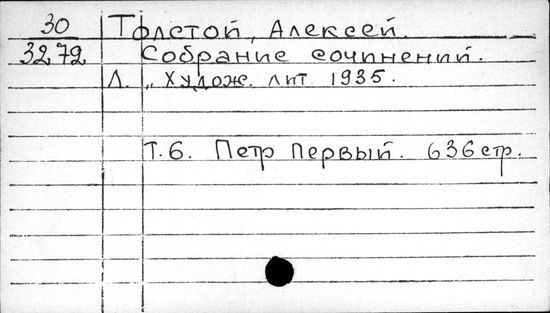 30 Толстой, Алексей.
3272 Собрание сочинений.
Л. „Худож. лит 1935.
Т.6. Петр Первый. 636 стр.